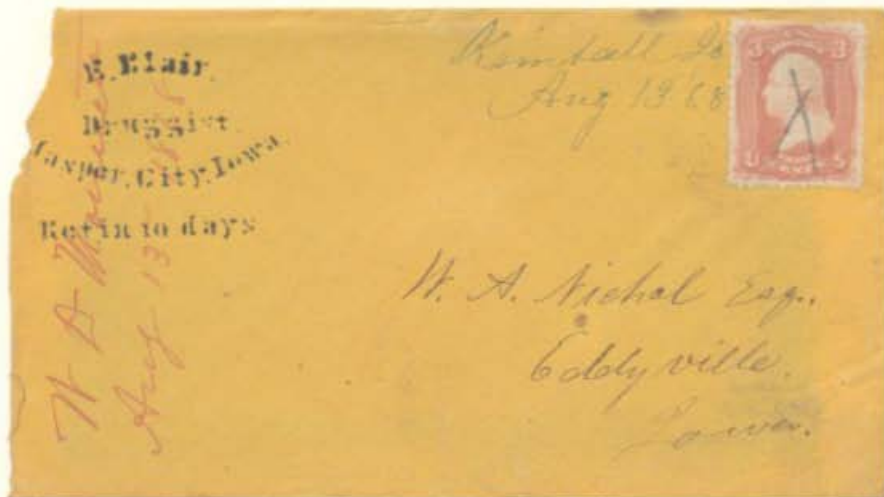 E. Blair.
Druggist.
Jasper, City, Iowa.
Ret in 10 days
Kimball Io
Aug 13 68
3 3
U S
W. A. Nichol Esq.
Eddyville.
Iowa.
W A
Aug 13